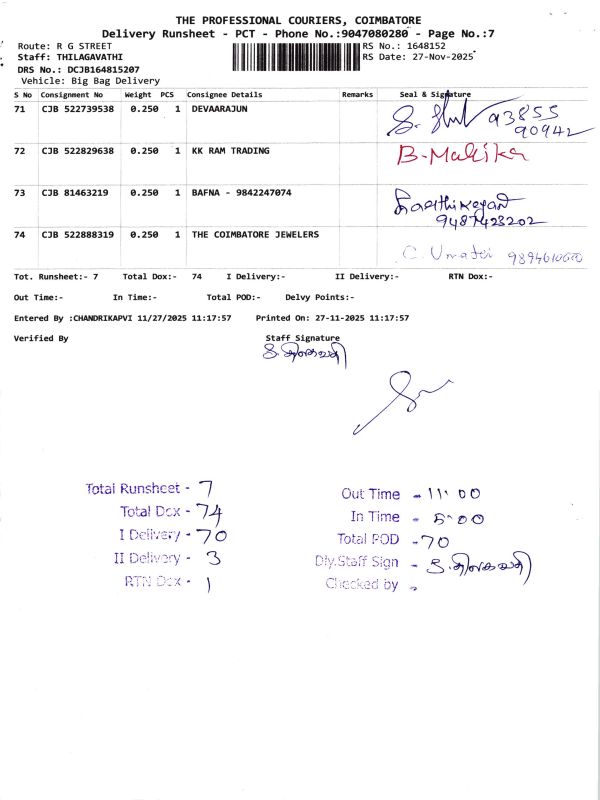 THE PROFESSIONAL COURIERS, COIMBATORE
Delivery Runsheet - PCT - Phone No.:9047080280 - Page No.:7
Route: R G STREET RS No.: 1648152
Staff: THILAGAVATHI RS Date: 27-Nov-2025
DRS No.: DCJB164815207
Vehicle: Big Bag Delivery
S No Consignment No Weight PCS Consignee Details Remarks Seal & Signature
71 CJB 522739538 0.250 1 DEVAARAJUN 93855
90942
72 CJB 522829638 0.250 1 KK RAM TRADING B-Mallika
73 CJB 81463219 0.250 1 BAFNA - 9842247074 Karthikeyan
9487423202
74 CJB 522888319 0.250 1 THE COIMBATORE JEWELERS C. Umathi
Tot. Runsheet:- 7 Total Dox:- 74 I Delivery:- II Delivery:- RTN Dox:-
Out Time:- In Time:- Total POD:- Delvy Points:-
Entered By :CHANDRIKAPVI 11/27/2025 11:17:57 Printed On: 27-11-2025 11:17:57
Verified By Staff Signature
Total Runsheet - 7 Out Time - 11:00
Total Dox - 74 In Time - 5:00
I Delivery - 70 Total POD - 70
II Delivery - 3 Dly.Staff Sign -
RTN Dox - 1 Checked by -